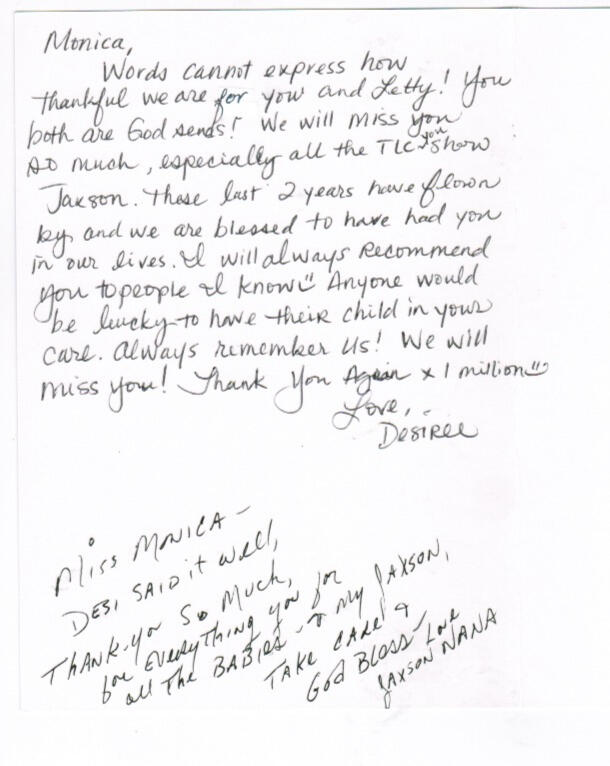 Monica,
Words cannot express how
thankful we are for you and Letty! You
both are God sends! We will miss you
so much, especially all the TLC you show
Jaxson. These last 2 years have flown
by and we are blessed to have had you
in our lives. I will always recommend
you to people I know Anyone would
be lucky to have their child in your
care. Always remember us! We will
miss you! Thank You Again x 1 million
Love,
Desiree
Miss Monica -
Desi said it well,
Thank-you so much,
for everything you for
all the Babies - & my Jaxson,
Take care &
God Bless - Love
Jaxson Nana